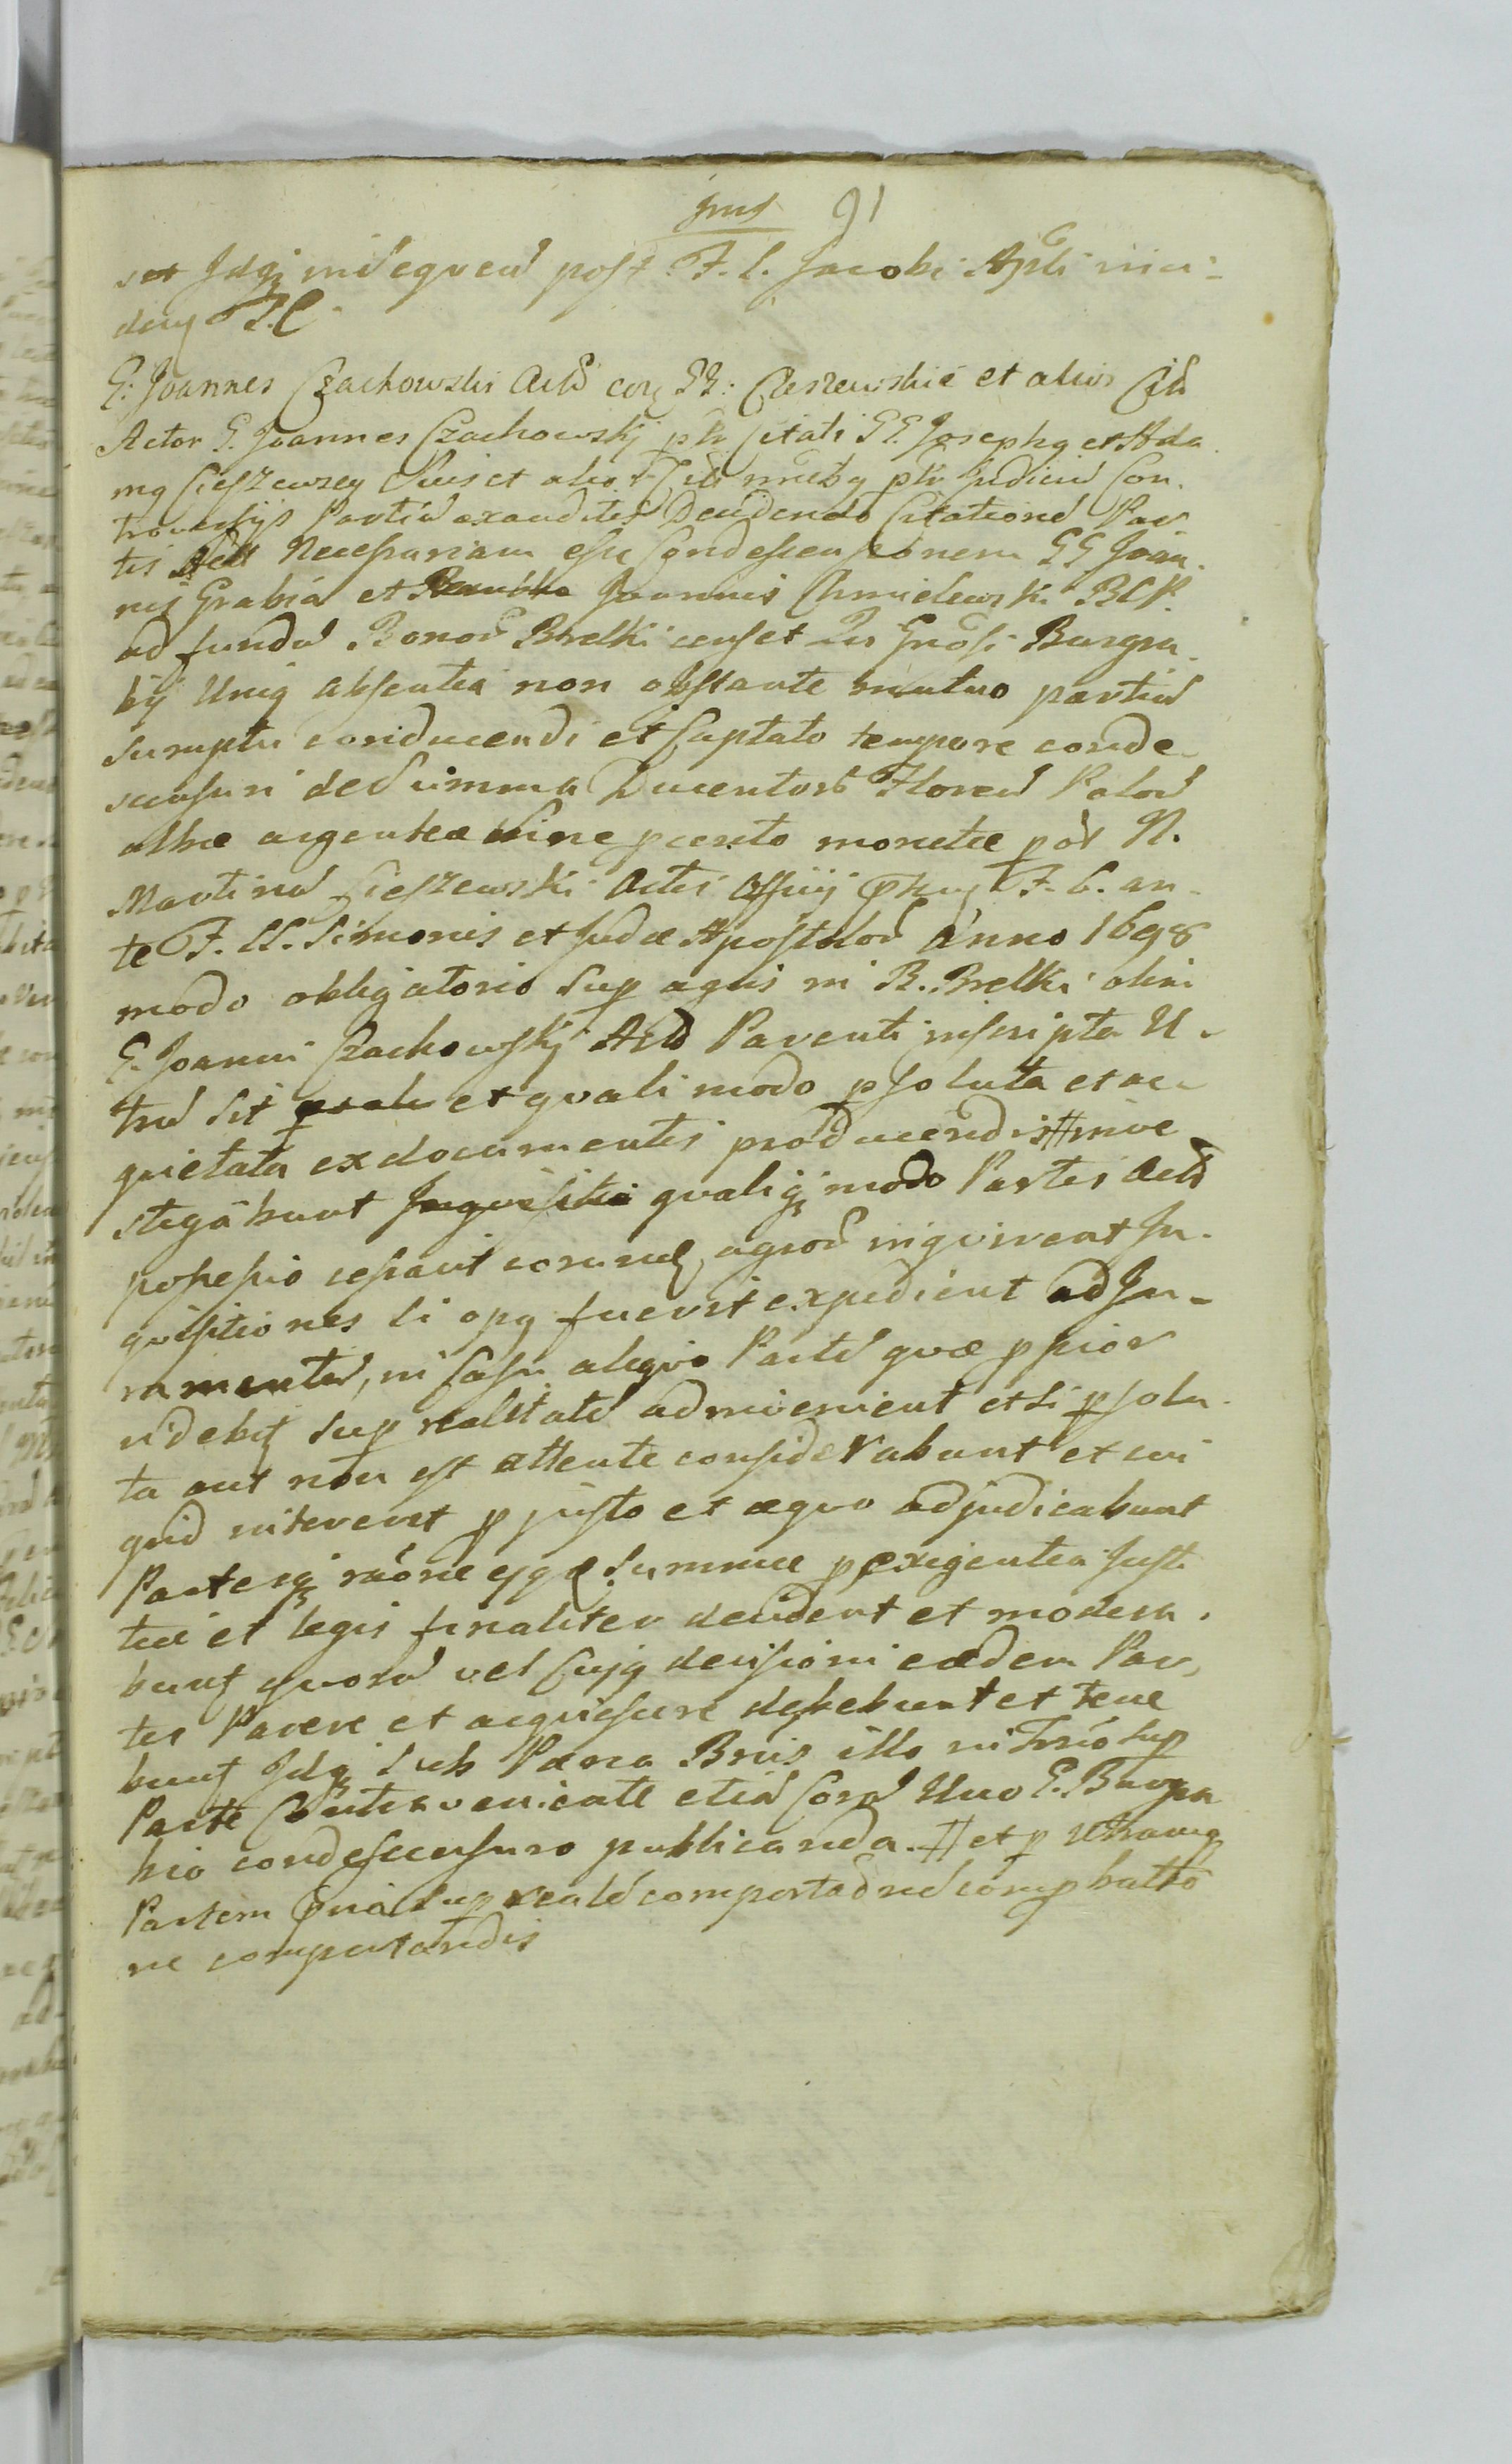 91
set Idqz insequen post F. S. Jacobi Apli inci-
den F. C.
G. Joannes Czachowski Act cor GG: Cieszewskie et alios Cit
Actor G. Joannes Czachowskj ptr Citati GG. Josephg et Ada
mg Cieszewscy et alios Citt ptr Judiciu Con.
trouersijs Partiu exauditis Decidendo Citatione Par
tis Act Necessariam esse Condescensionem GG Joan.
nis Grabia et Joannis Chmielewski BCP.
ad fundu Bonor Brelki censet Grosi Burgra.
bij Unig absentia non obstante mutuo partiu
sumptu conducendi et Captato tempore conde
scensuri de Summa Ducentor Floren Polon
albæ argenteæ monetæ per N.
Martinu Cieszewski Actis Officij F. 6. an-
te F. SS. Simonis et Judæ Apostolor Anno 1698
modo obligatorio Sup agris in B. Brelki olim
G. Joanni Czachowskj Act Parenti inscripta U.
tru sit et quali modo psoluta et ac
quietata ex documentis producendis # inve
stigabunt qualiqz modo Partis Act
possessio cessavit eorund agror inquirent In.
quisitiones si opg fuerit expedient ad Ju-
ramentu, in Casu aliquo Parte quæ ppior
videbit sup realitate admovenient et si psolu.
ta aut non est attente considerabunt et cui
quid intererit p justo et æquo adjudicabunt
Partesqz raone ejgd Summæ p exigentia Justi
tiæ et legis finaliter decident et modera.
bunt quoru vel Cujg decisioni eædem Par,
tes Parere et acquiescere debebunt et tene
bunt Idqz sub Pæna Bnis illo in Trio sup
Parte Contraveniente etia Cora Uno G. Burgra
bio condescensuro publicanda. # et p utramq
Partem sup reali comportad comp
ne comportandis